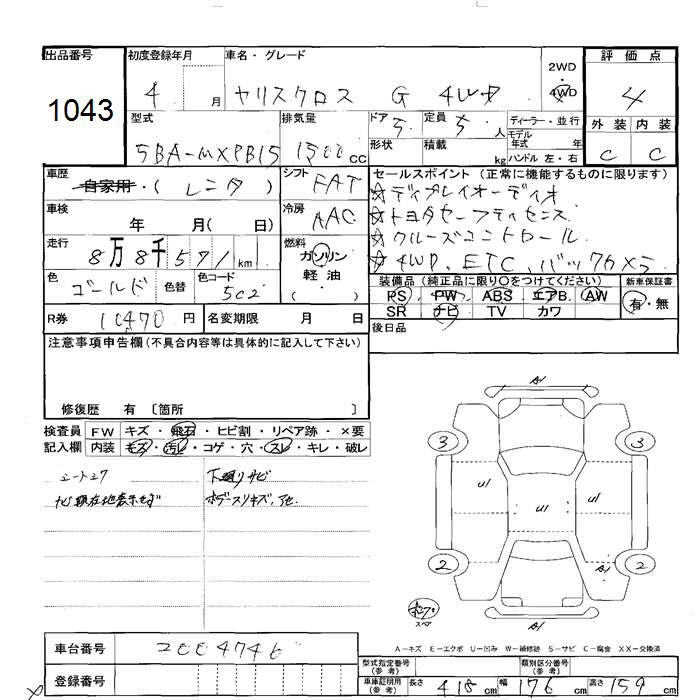 出品番号
1043
初度登録年月
4 月
車名・グレード
ヤリスクロス G 4WD
2WD
4WD
評価点
4
外装 内装
C C
型式
5BA-MXPB15
排気量
1500 CC
ドア 5
定員 5 人
形状
積載 kg
ディーラー・並行
モデル年式 年式
ハンドル 左・右
車歴
自家用・(レンタ)
シフト
FAT
車検
年 月( 日)
冷房
AAC
走行
8万8千571km
燃料
ガソリン
軽油
( )
色
ゴールド
色替
色コード
5C2
R券
10470円
名変期限 月 日
セールスポイント(正常に機能するものに限ります)
☆ディプレイオーディオ
☆トヨタセーフティセンス
☆クルーズコントロール
☆4WD、ETC、バックカメラ
装備品(純正品に限り〇をつけてください)
PS PW ABS エアB. AW
SR ナビ TV カワ
新車保証書
有・無
後日品
注意事項申告欄(不具合内容等は具体的に記入して下さい)
修復歴 有〔箇所 〕
検査員記入欄
FW キズ・飛石・ヒビ割・リペア跡・×要
内装 キズ・汚レ・コゲ・穴・スレ・キレ・破レ
ナビ現在地表示せず
下廻りサビ
ボデースリキズ、
A1
3 3
U1 U1 U1
2 2
A1
A-キズ E-エクボ U-凹み W-補修跡 S-サビ C-腐食 XX-交換済
車台番号
2004746
登録番号
型式指定番号(参考)
類別区分番号(参考)
車庫証明用(参考)
長さ 418 cm 幅 176 cm 高さ 159 cm